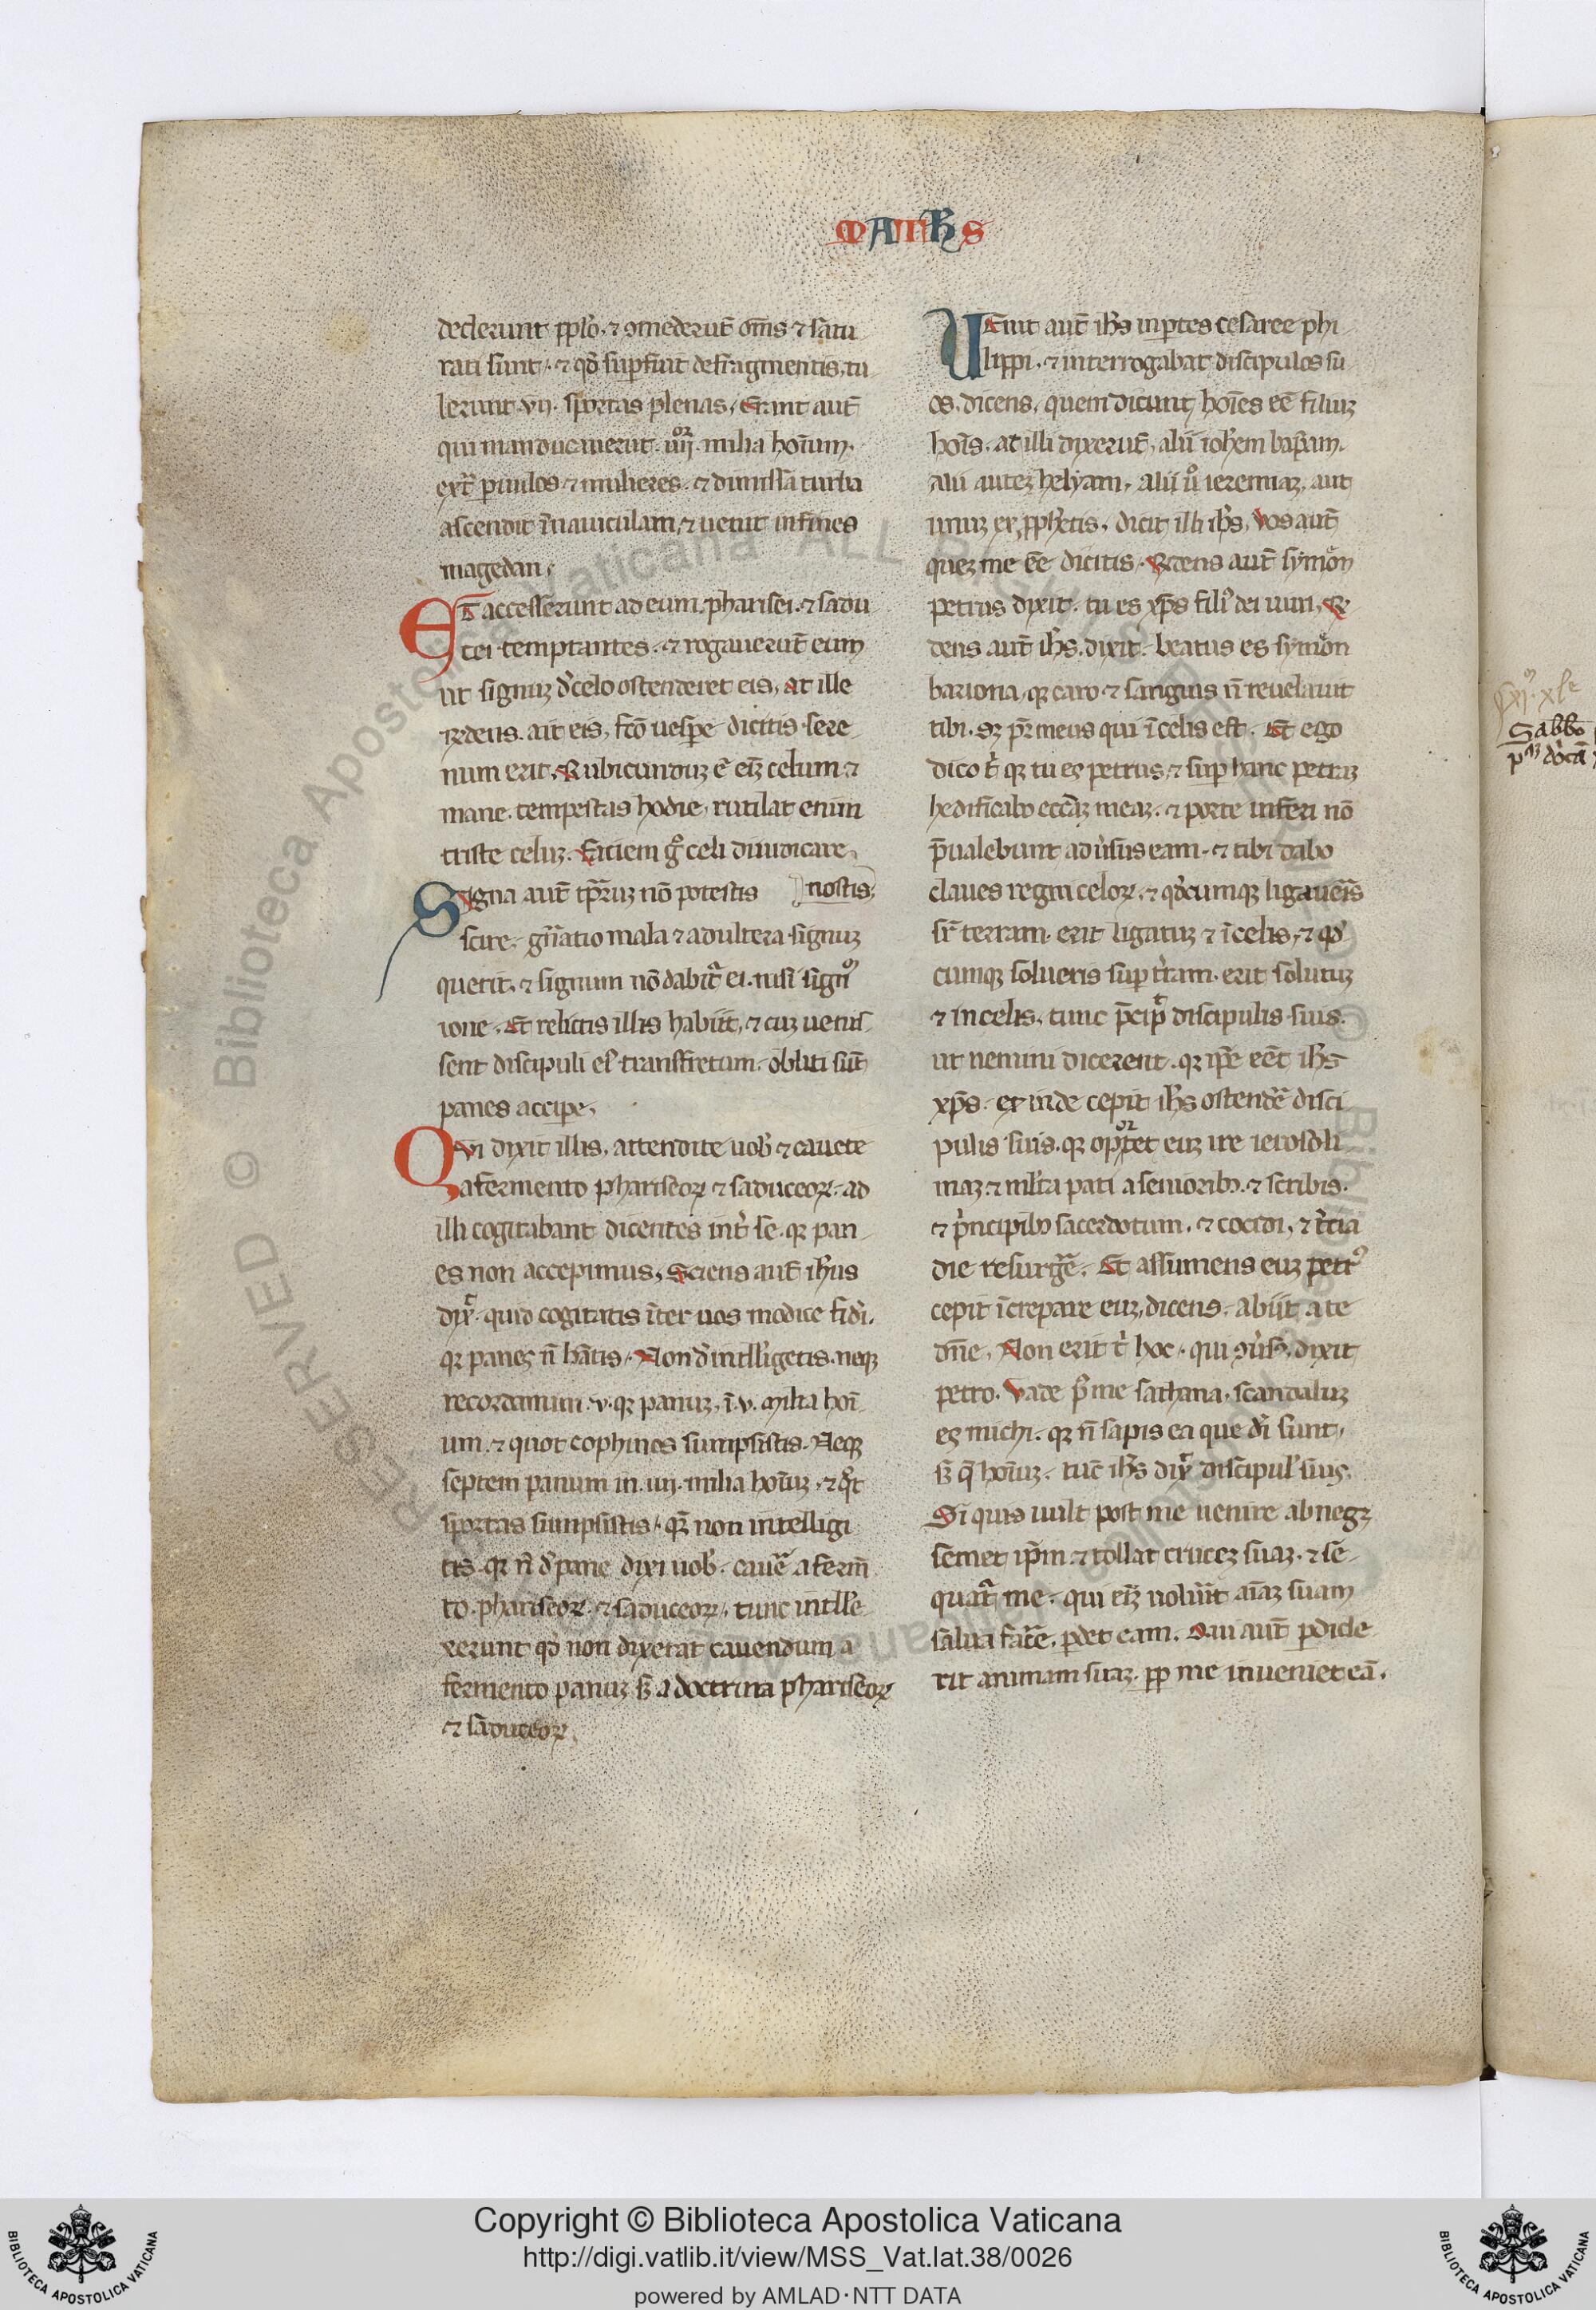 MATHS
dederunt pplo. ⁊ ꝯmederut̄ om̄s ⁊ satu
rati sunt. ⁊ qd̓ supfuit de fragmentis, tu
lerunt. vii. sportas plenas. Erant aut̄
qui manducauerūt. iiii.or milia hoīum.
ext̄ paruulos ⁊ mulieres. ⁊ dimissa turba
ascendit ī nauiculam, ⁊ uenit in fines
magedan.
Et accesserunt ad eum. pharisei. ⁊ sadu
cei temptantes. ⁊ rogauerut̄ eum
ut signuꝫ d̓ celo ostenderet eis, at ille
rn̄dens. ait eis, fcō uespe dicitis sere
num erit. Rubicunduꝫ ē eī celum. ⁊
mane. tempestas hodie. rutilat enim
triste celuꝫ. Faciem g̊ celi diiudicare
nostis
Signa aut̄ tp̄ruꝫ nō potestis
scire. gn̄atio mala ⁊ adultera signuꝫ
querit. ⁊ signum nō dabit̄ ei. nisi sign̄
ione. Et relictis illis habiit, ⁊ cuꝫ uenis
sent discipuli ei̓ transfretum. obliti sūt
panes accipe.
Qui dixit illis, attendite uob̓ ⁊ cauete
a fermento phariseoꝝ ⁊ saduceoꝝ. ad
illi cogitabant dicentes int̓ se. qꝛ pan
es non accepimus, Sciens aut̄ ih̄us
dix̄. quid cogitatis īter uos modice fidi.
qꝛ panes n̄ hētis. Nond̓ intll̓igetis. neqꝫ
recordamini. v. qꝛ panuꝫ, ī. v. milia hoī
um. ⁊ quot cophinos sumpsistis. Neqꝫ
septem panum in. iiii. milia hoīuꝫ. ⁊ qͦt
sportas sumpsistis. qꝛ̄ non intelligi
tis. qꝛ n̄ d̓ pane dixi uob̓. cauē a ferm̄
to. phariseoꝝ. ⁊ saduceoꝝ. tunc intll̓e
xerunt qd̓ non dixerat cauendum a
fermento panuꝫ sꝫ a doctrina phariseoꝝ
⁊ saduceoꝝ.
Uenit aut̄ ih̄s in ptes cesaree phi
lippi. ⁊ interrogabat discipulos su
os. dicens, quem dicunt hoīes eē filiuꝫ
hoīs. at illi dixerut̄, alii ioh̄em bap̄tam.
alii auteꝫ helyam, alii ů ieremiaꝫ, aut
unuꝫ ex pph̄etis. dicit illi ih̄s, Vos aut̄
queꝫ me eē dicitis. Rn̄dens aut̄ symon
petrus dixit. tu es xp̄s fili̓ dei uiui, Rn̄
dens aut̄ ih̄s. dixit. beatus es symon
bariona, qꝛ caro ⁊ sanguis n̄ reuelauit
tibi. sꝫ pr̄ meus qui ī celis est. Et ego
dico t̓ qꝛ tu es petrus, ⁊ sup hanc petraꝫ
hedificabo eccl̄aꝫ meaꝫ. ⁊ porte inferi nō
p̄ualebunt adu̓sus eam. ⁊ tibi dabo
claues regni celoꝝ. ⁊ qd̓cumqꝫ ligaueris
sr̄ terram. erit ligatuꝫ ⁊ ī celis, ⁊ qd̓
cumqꝫ solueris sup t̓ram. erit solutuꝫ
⁊ in celis. tunc p̄cip̄ discipulis suis.
ut nemini dicerent. qꝛ ip̄e eēt ih̄s
xp̄s. ex inde cepit ih̄s ostendē disci
pulis suis. qꝛ oportet euꝫ ire ierosoli
maꝫ. ⁊ ml̓ta pati a seniorib. ⁊ scribis.
⁊ p̓ncipib sacerdotum. ⁊ occidi, ⁊ t̓cia
die resurgē. Et assumens euꝫ petr̓
cepit īcrepare euꝫ, dicens. abiit a te
dn̄e. Non erit t̓ hoc. qui ꝯu̓s. dixit
petro. Vade p̓ me sathana. scandaluꝫ
es michi. qꝛ n̄ sapis ea que di̓ sunt,
sꝫ q̄ hoīuꝫ. tūc ih̄s dix̄ discipul̓ suis.
Si quis uult post me uenire abnegꝫ
semet ip̄m. ⁊ tollat cruceꝫ suaꝫ. ⁊ se
quat̄ me. qui eī uoluīt aīaꝫ suam
salua facē. pdet eam. Qui aut̄ pdide
rit animam suaꝫ. pp me inueniet eā.
Sabbo
Copyright © Biblioteca Apostolica Vaticana
http://digi.vatlib.it/view/MSS_Vat.lat.38/0026
powered by AMLAD·NTT DATA
BIBLIOTECA APOSTOLICA VATICANA
BIBLIOTECA APOSTOLICA VATICANA